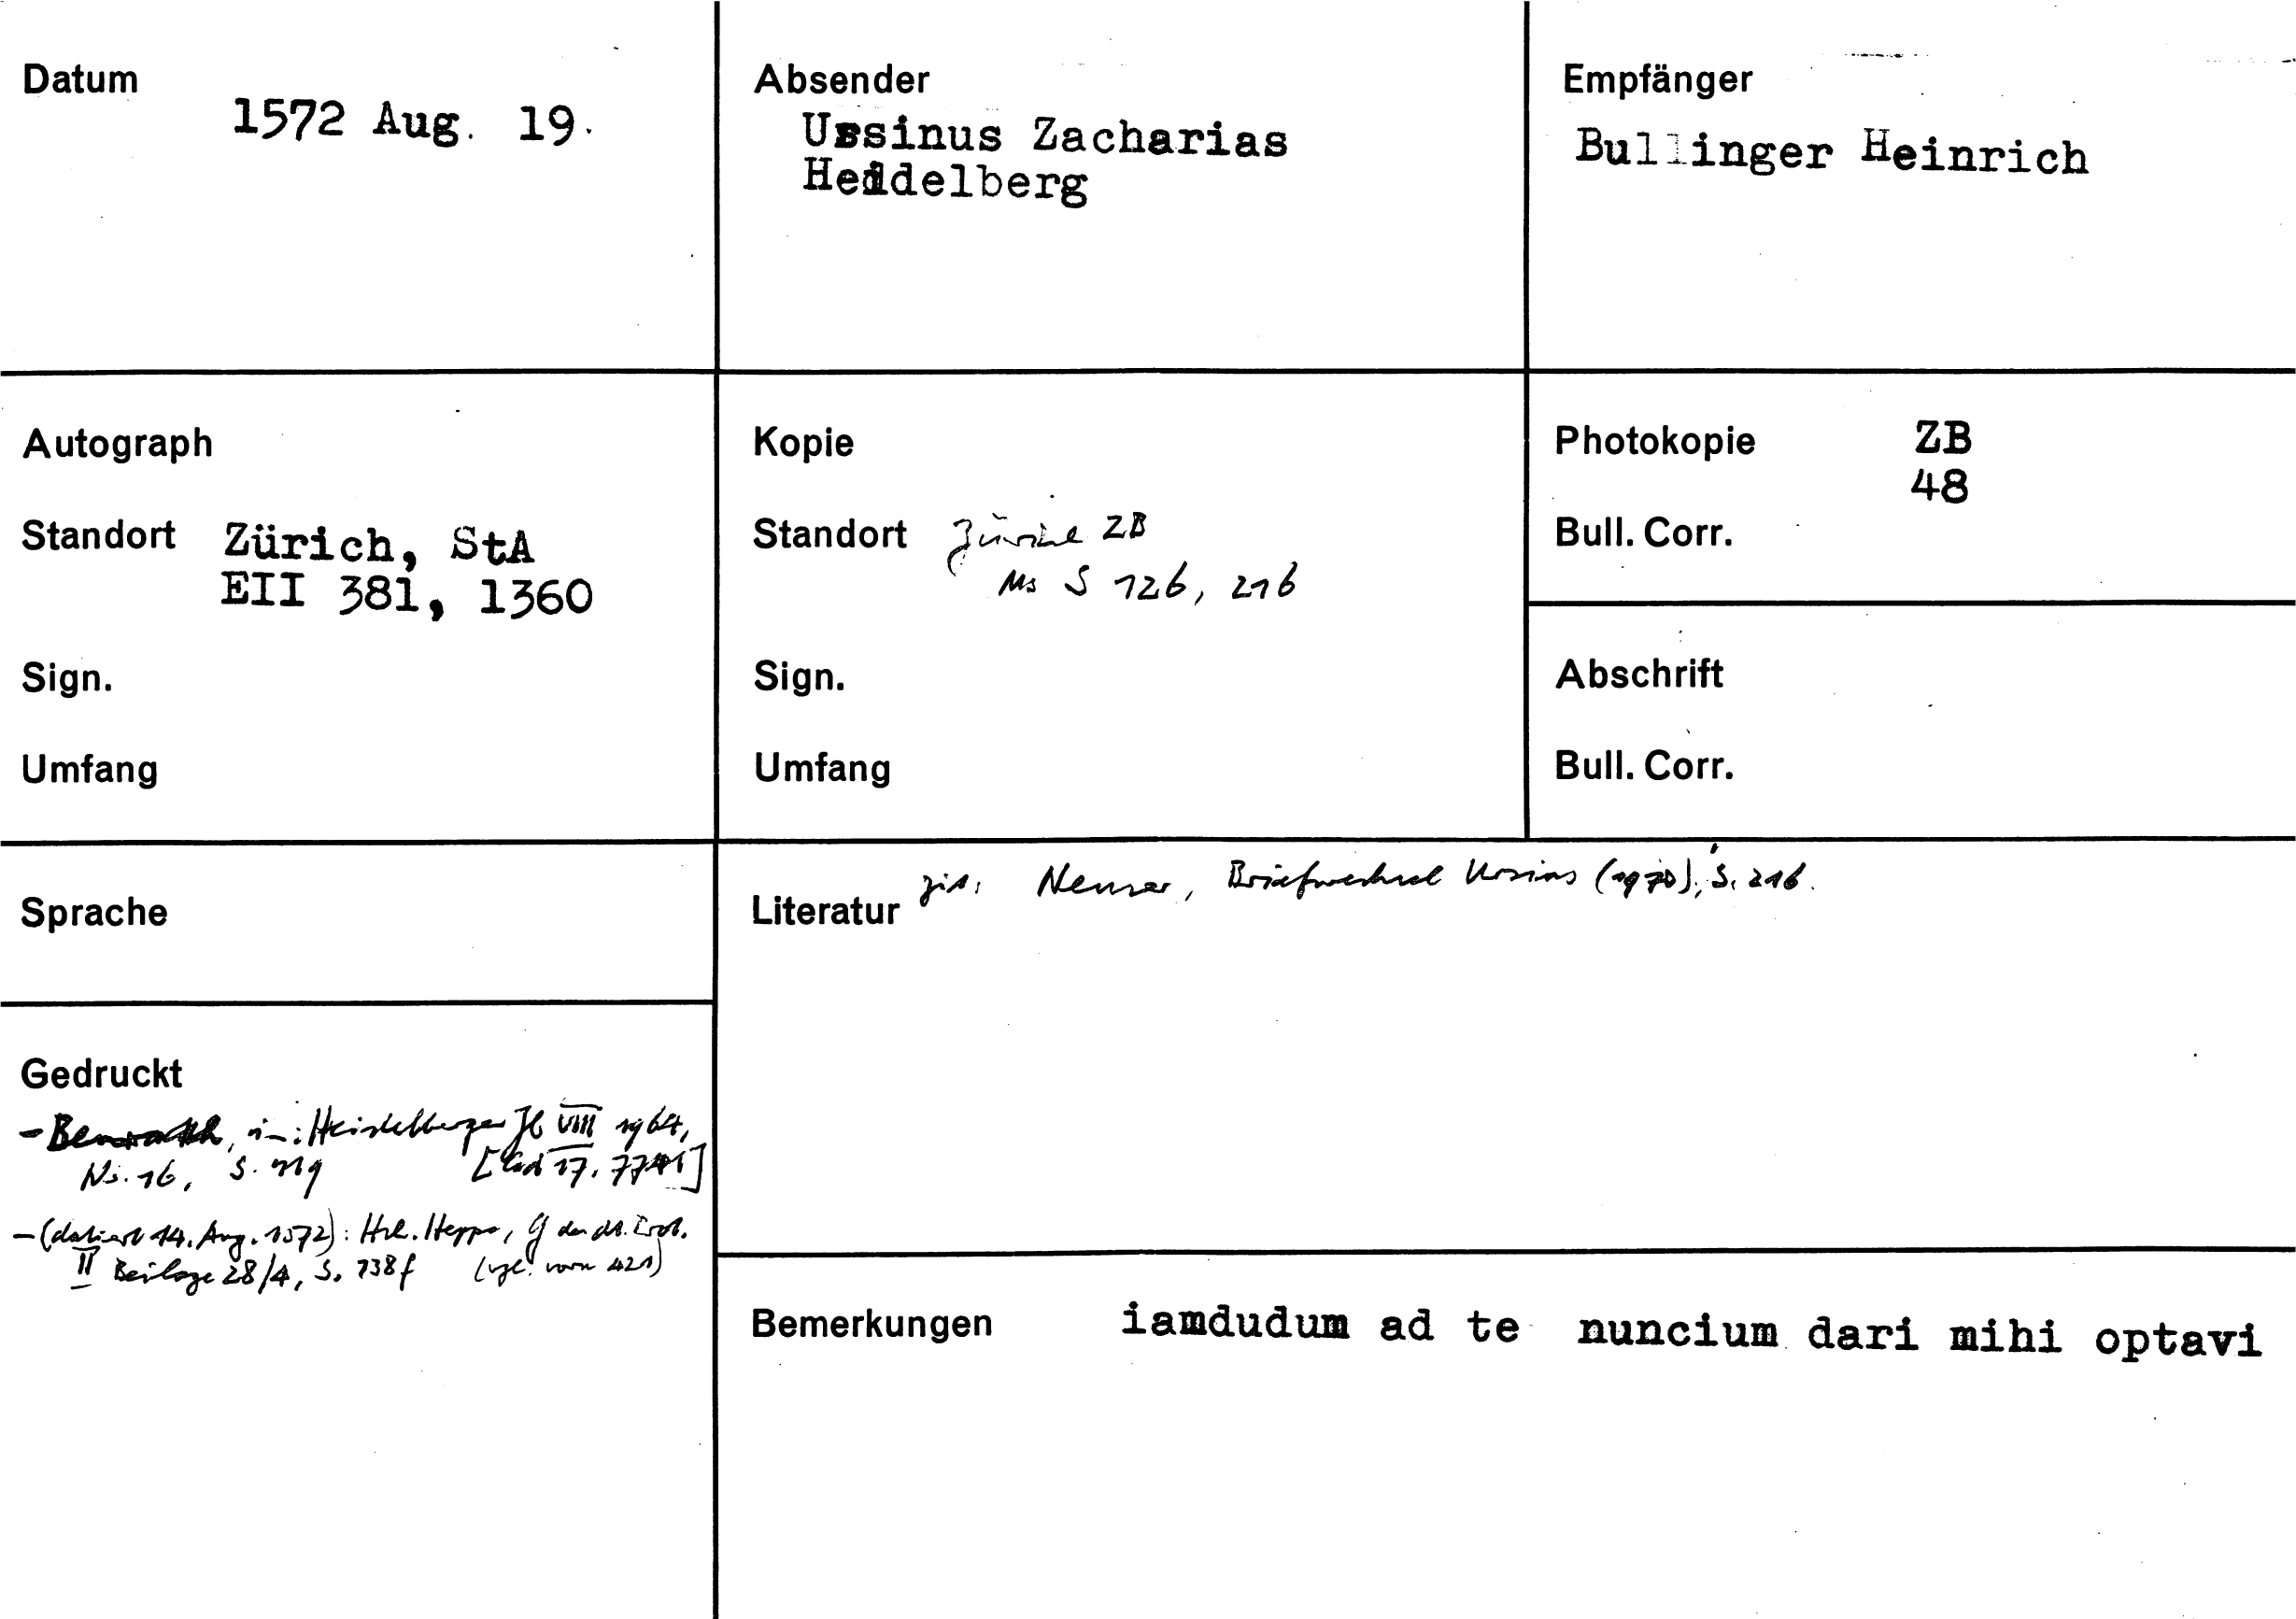 Datum
1572 Aug. 19.
Absender
Ursinus Zacharias
Heidelberg
Empfänger
Bullinger Heinrich
Autograph
Standort Zürich, StA
EII 381, 1360
Sign.
Umfang
Kopie
Standort Zürich ZB
Ms S 126, 216
Sign.
Umfang
Photokopie ZB
48
Bull. Corr.
Abschrift
Bull. Corr.
Sprache
Literatur zit: Neuser, Briefwechsel Ursins (1970), S. 216.
Gedruckt
- Benrath, in: Heidelberger Jb VIII 1964,
Nr. 16, S. 119
- (datiert 14. Aug. 1572): Hch. Heppe, G des dt. Prot.
II Beilage 28/4, S. 138f (vgl. vorn 421)
Bemerkungen iamdudum ad te nuncium dari mihi optavi